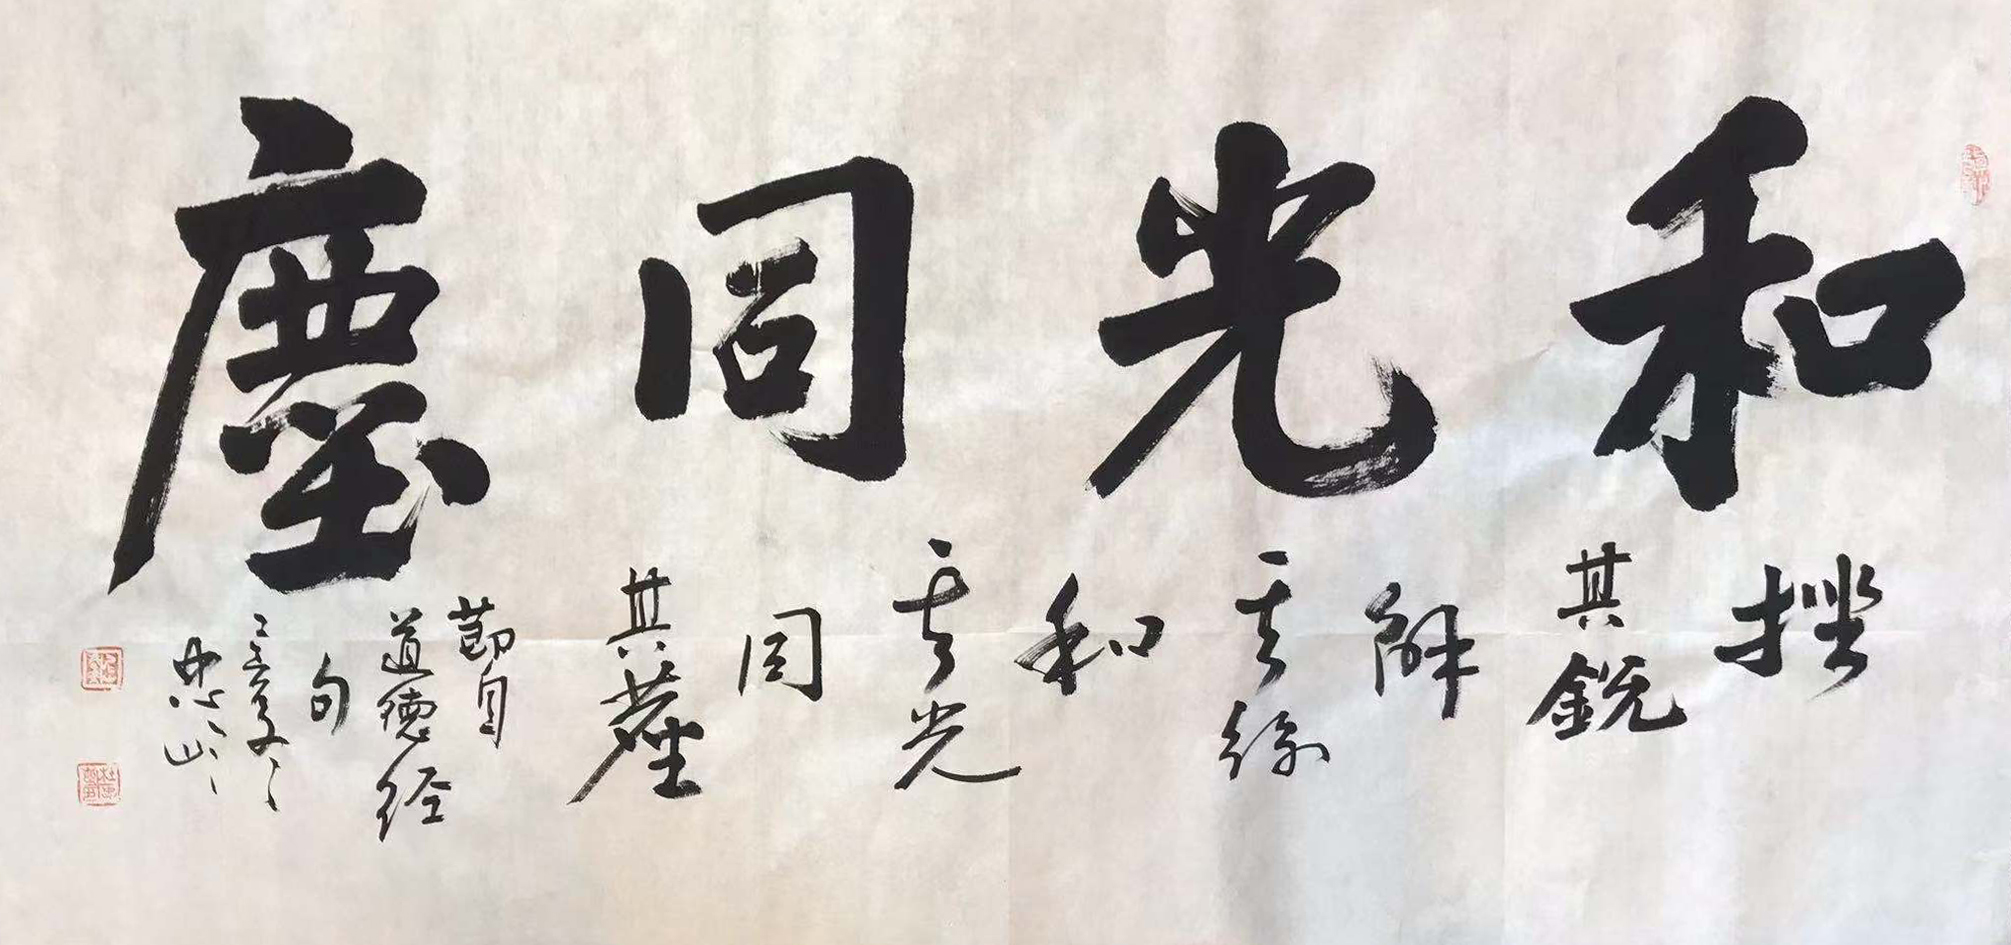 和光同塵
挫
其銳
解
其紛
和
其光
同
其塵
節自
道德经
句
忠山